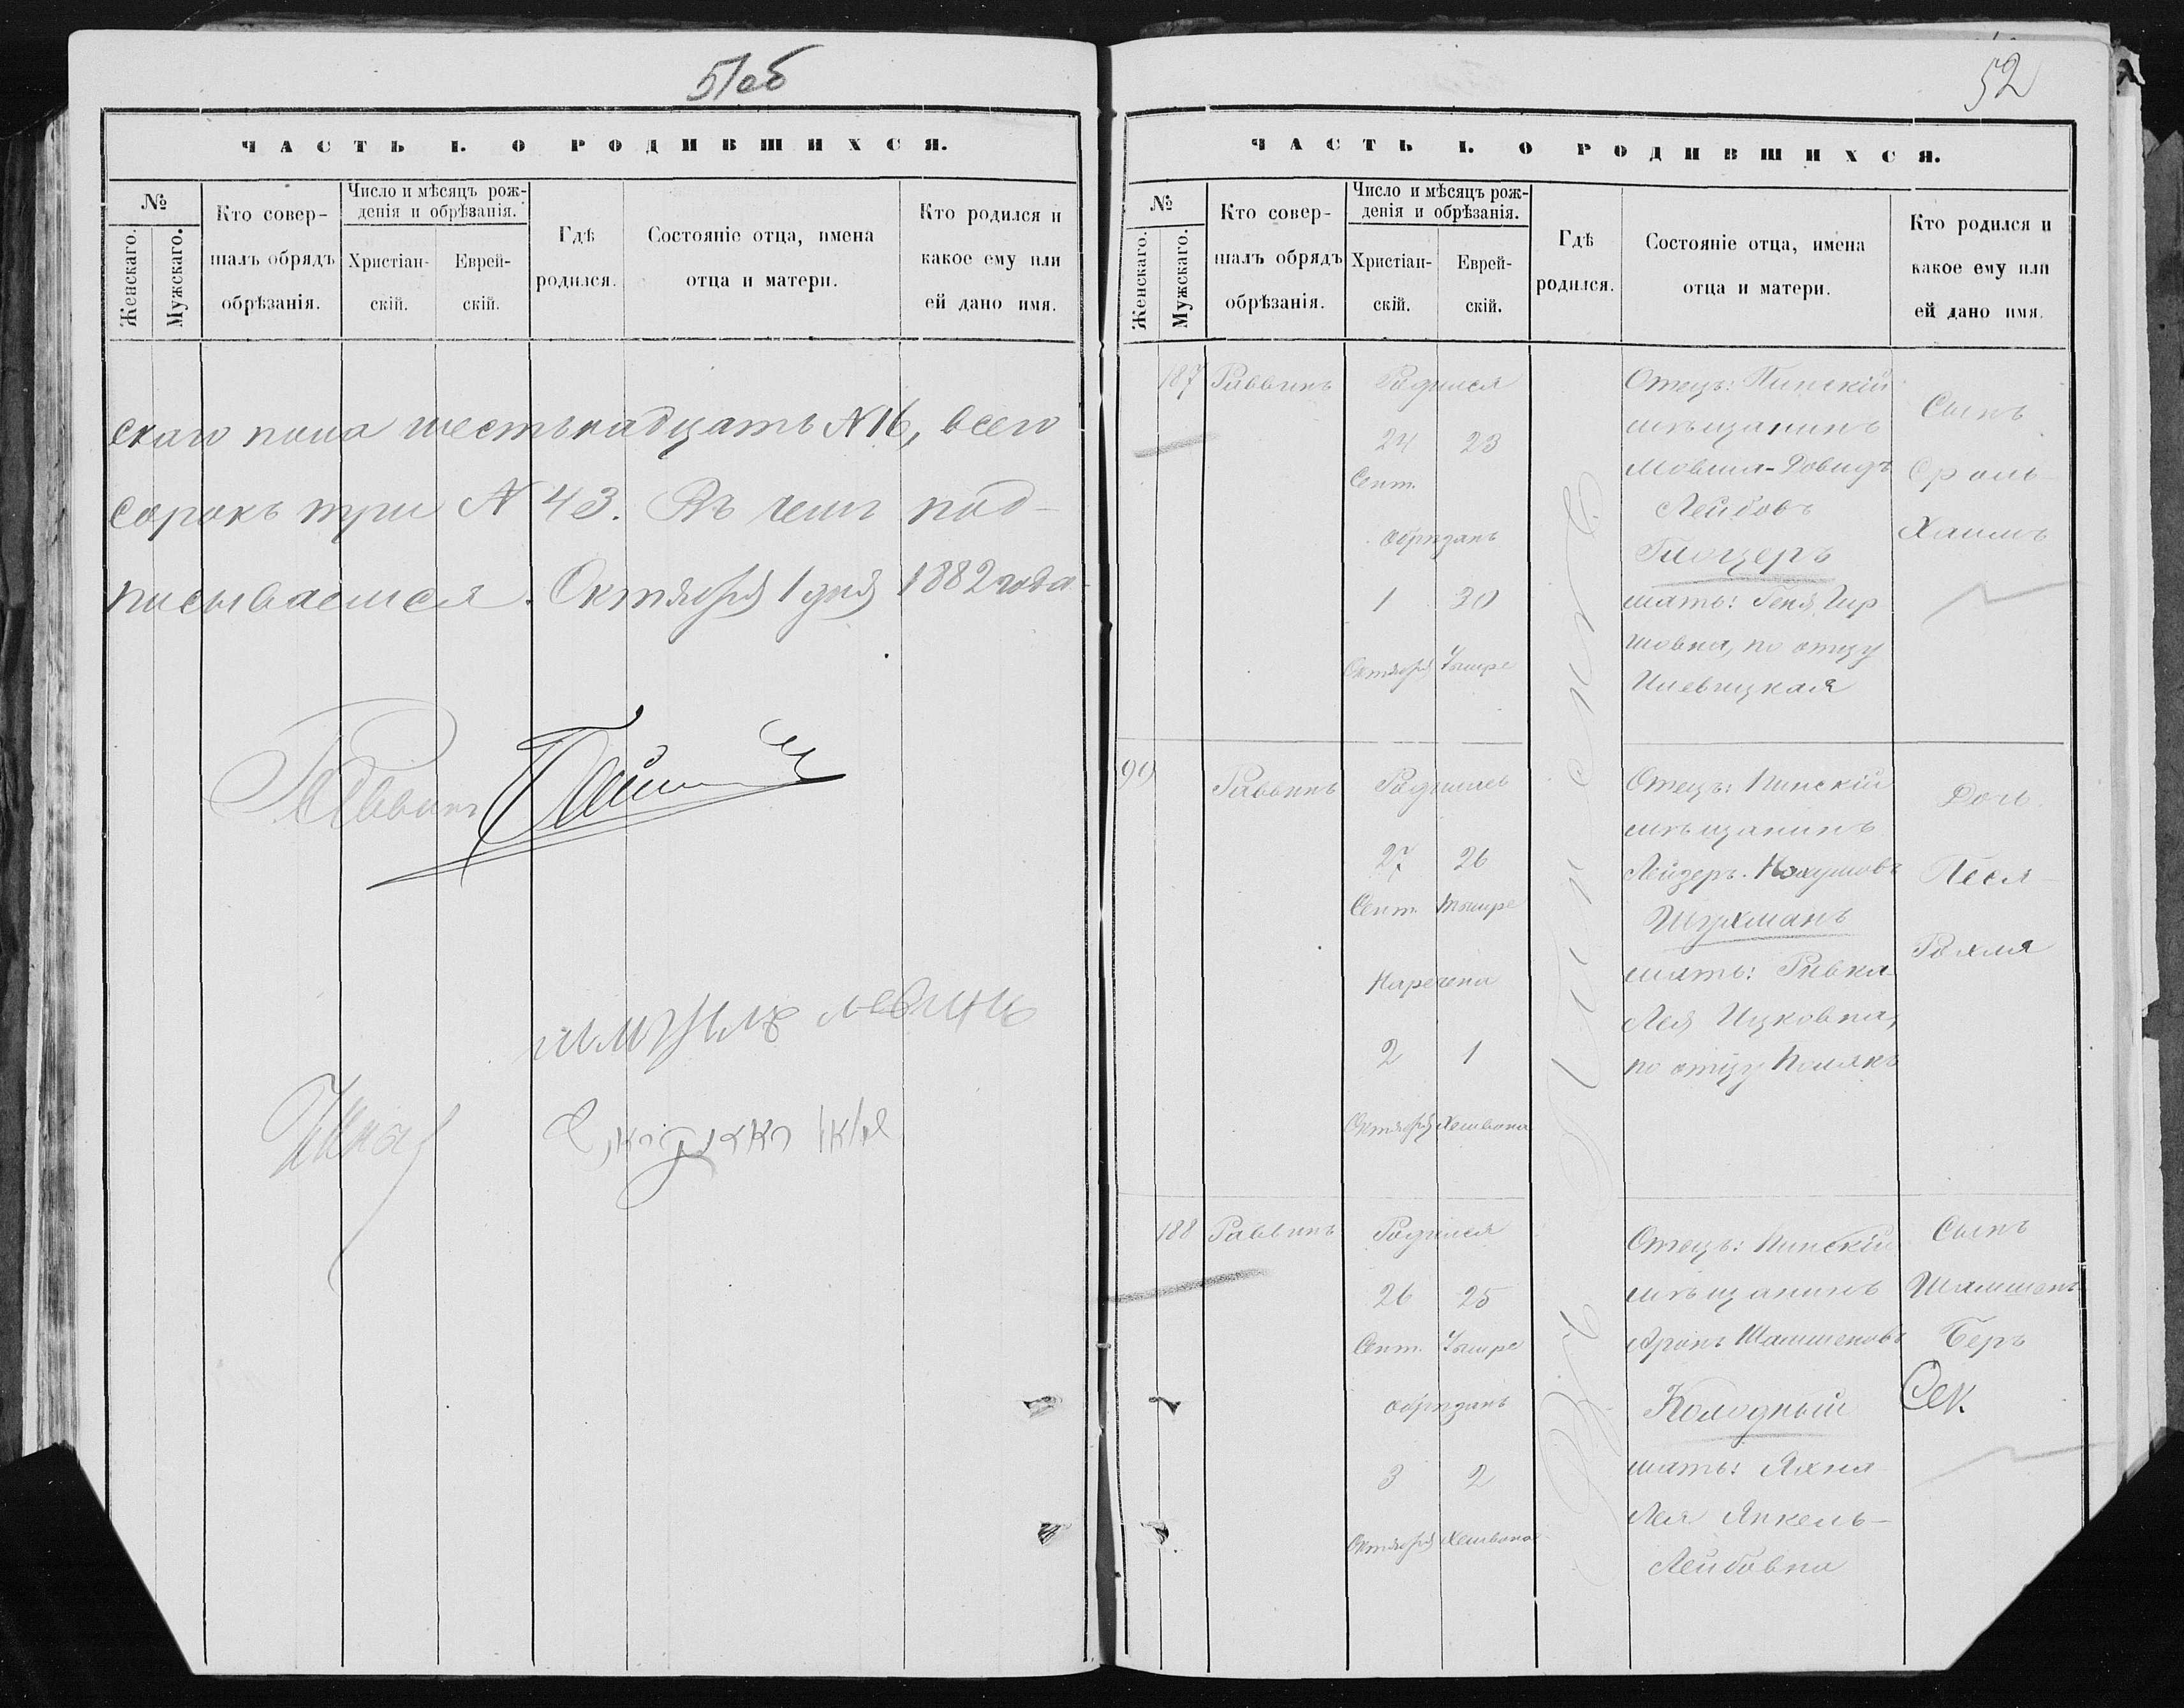 51об
ЧАСТЬ I. О РОДИВШИХСЯ.
№
Женскаго.
Мужскаго.
Кто совер-
шалъ обрядъ
обрѣзанія.
Число и мѣсяцъ рож-
денія и обрѣзанія.
Христіан-
скій.
Еврей-
скій.
Гдѣ
родился.
Состояніе отца, имена
отца и матери.
Кто родился и
какое ему или
ей дано имя.
скаго пола шестьнадцать №16, всего
сорокъ три № 43. Въ чемъ под-
писываемся. Октября 1 дня 1882 года
Раввинъ
левинъ
52
ЧАСТЬ I. О РОДИВШИХСЯ.
№
Женскаго.
Мужскаго.
Кто совер-
шалъ обрядъ
обрѣзанія.
Число и мѣсяцъ рож-
денія и обрѣзанія.
Христіан-
скій.
Еврей-
скій.
Гдѣ
родился.
Состояніе отца, имена
отца и матери.
Кто родился и
какое ему или
ей дано имя.
187
Раввинъ
Родился
24 23
Сент.
обрѣзанъ
1 30
Октября Тышре
Отецъ: Пинскій
мѣщанинъ
Мовша-Довидъ
Лейбовъ
Глоуберъ
мать: Геня Гир
шовна, по отцу
Сынъ
Сроль
Хаимъ
99
Раввинъ
Родилась
27 26
Сент. Тышре
Наречена
2 1
Октября Хешвона
Отецъ: Пинскій
мѣщанинъ
Лейзеръ Нохумовъ
Шухманъ
мать: Ривка
Лея Ицковна,
по отцу Полякъ
Дочь
Песя
Рохля
188
Раввинъ
Родился
26 25
Сент. Тышре
обрѣзанъ
3 2
Октября Хешвона
Отецъ: Пинскій
мѣщанинъ
Аронъ Шамшоновъ
Колодный
мать: Яхна
Лея Янкель-
Лейбовна
Сынъ
Шамшонъ
Беръ
въ Пинскѣ